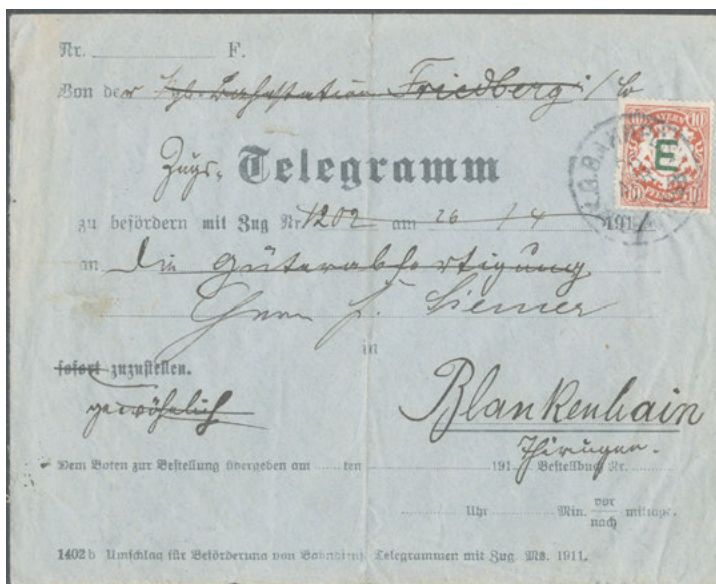 Nr. F.
Von der Kgl. Bahnstation Friedberg i/b
Zugs-Telegramm
BAYERN
10 E 10
zu befördern mit Zug Nr. 1202 am 26 / 4 191
an die Güterabfertigung
Herrn F. Siemer
in
sofort zuzustellen.
gewöhnlich
Blankenhain
Thüringen.
Dem Boten zur Bestellung übergeben am ten 191 Bestellbuch Nr.
Uhr Min. vor nach mittags.
1402 b Umschlag für Beförderung von Bahndienst-Telegrammen mit Zug. MB. 1911.